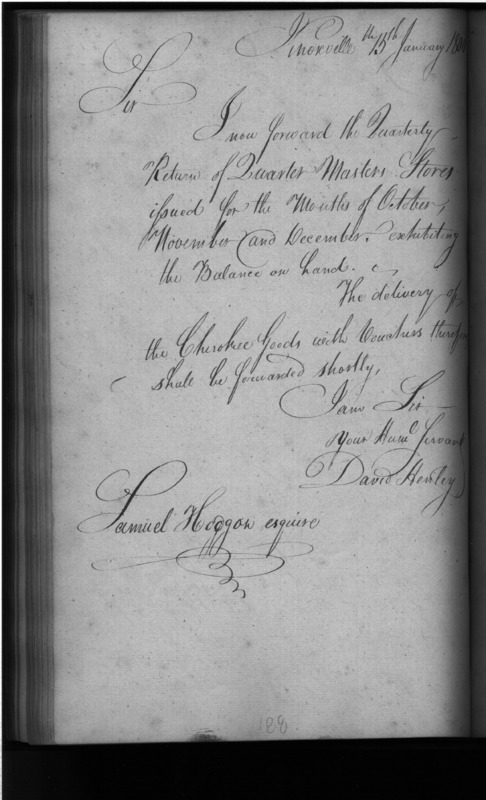 Knoxville 15th January
Sir
I now forward the Quarterly
Return of Quarter Masters Stores
issued for the Months of October,
November and December, exhibiting
the Balance on hand.
The delivery of
the Cherokee Goods with Vouchers
shall be forwarded shortly,
I am Sir
Your Hume Servant
David Henley
Samuel Hodgdon esquire
188